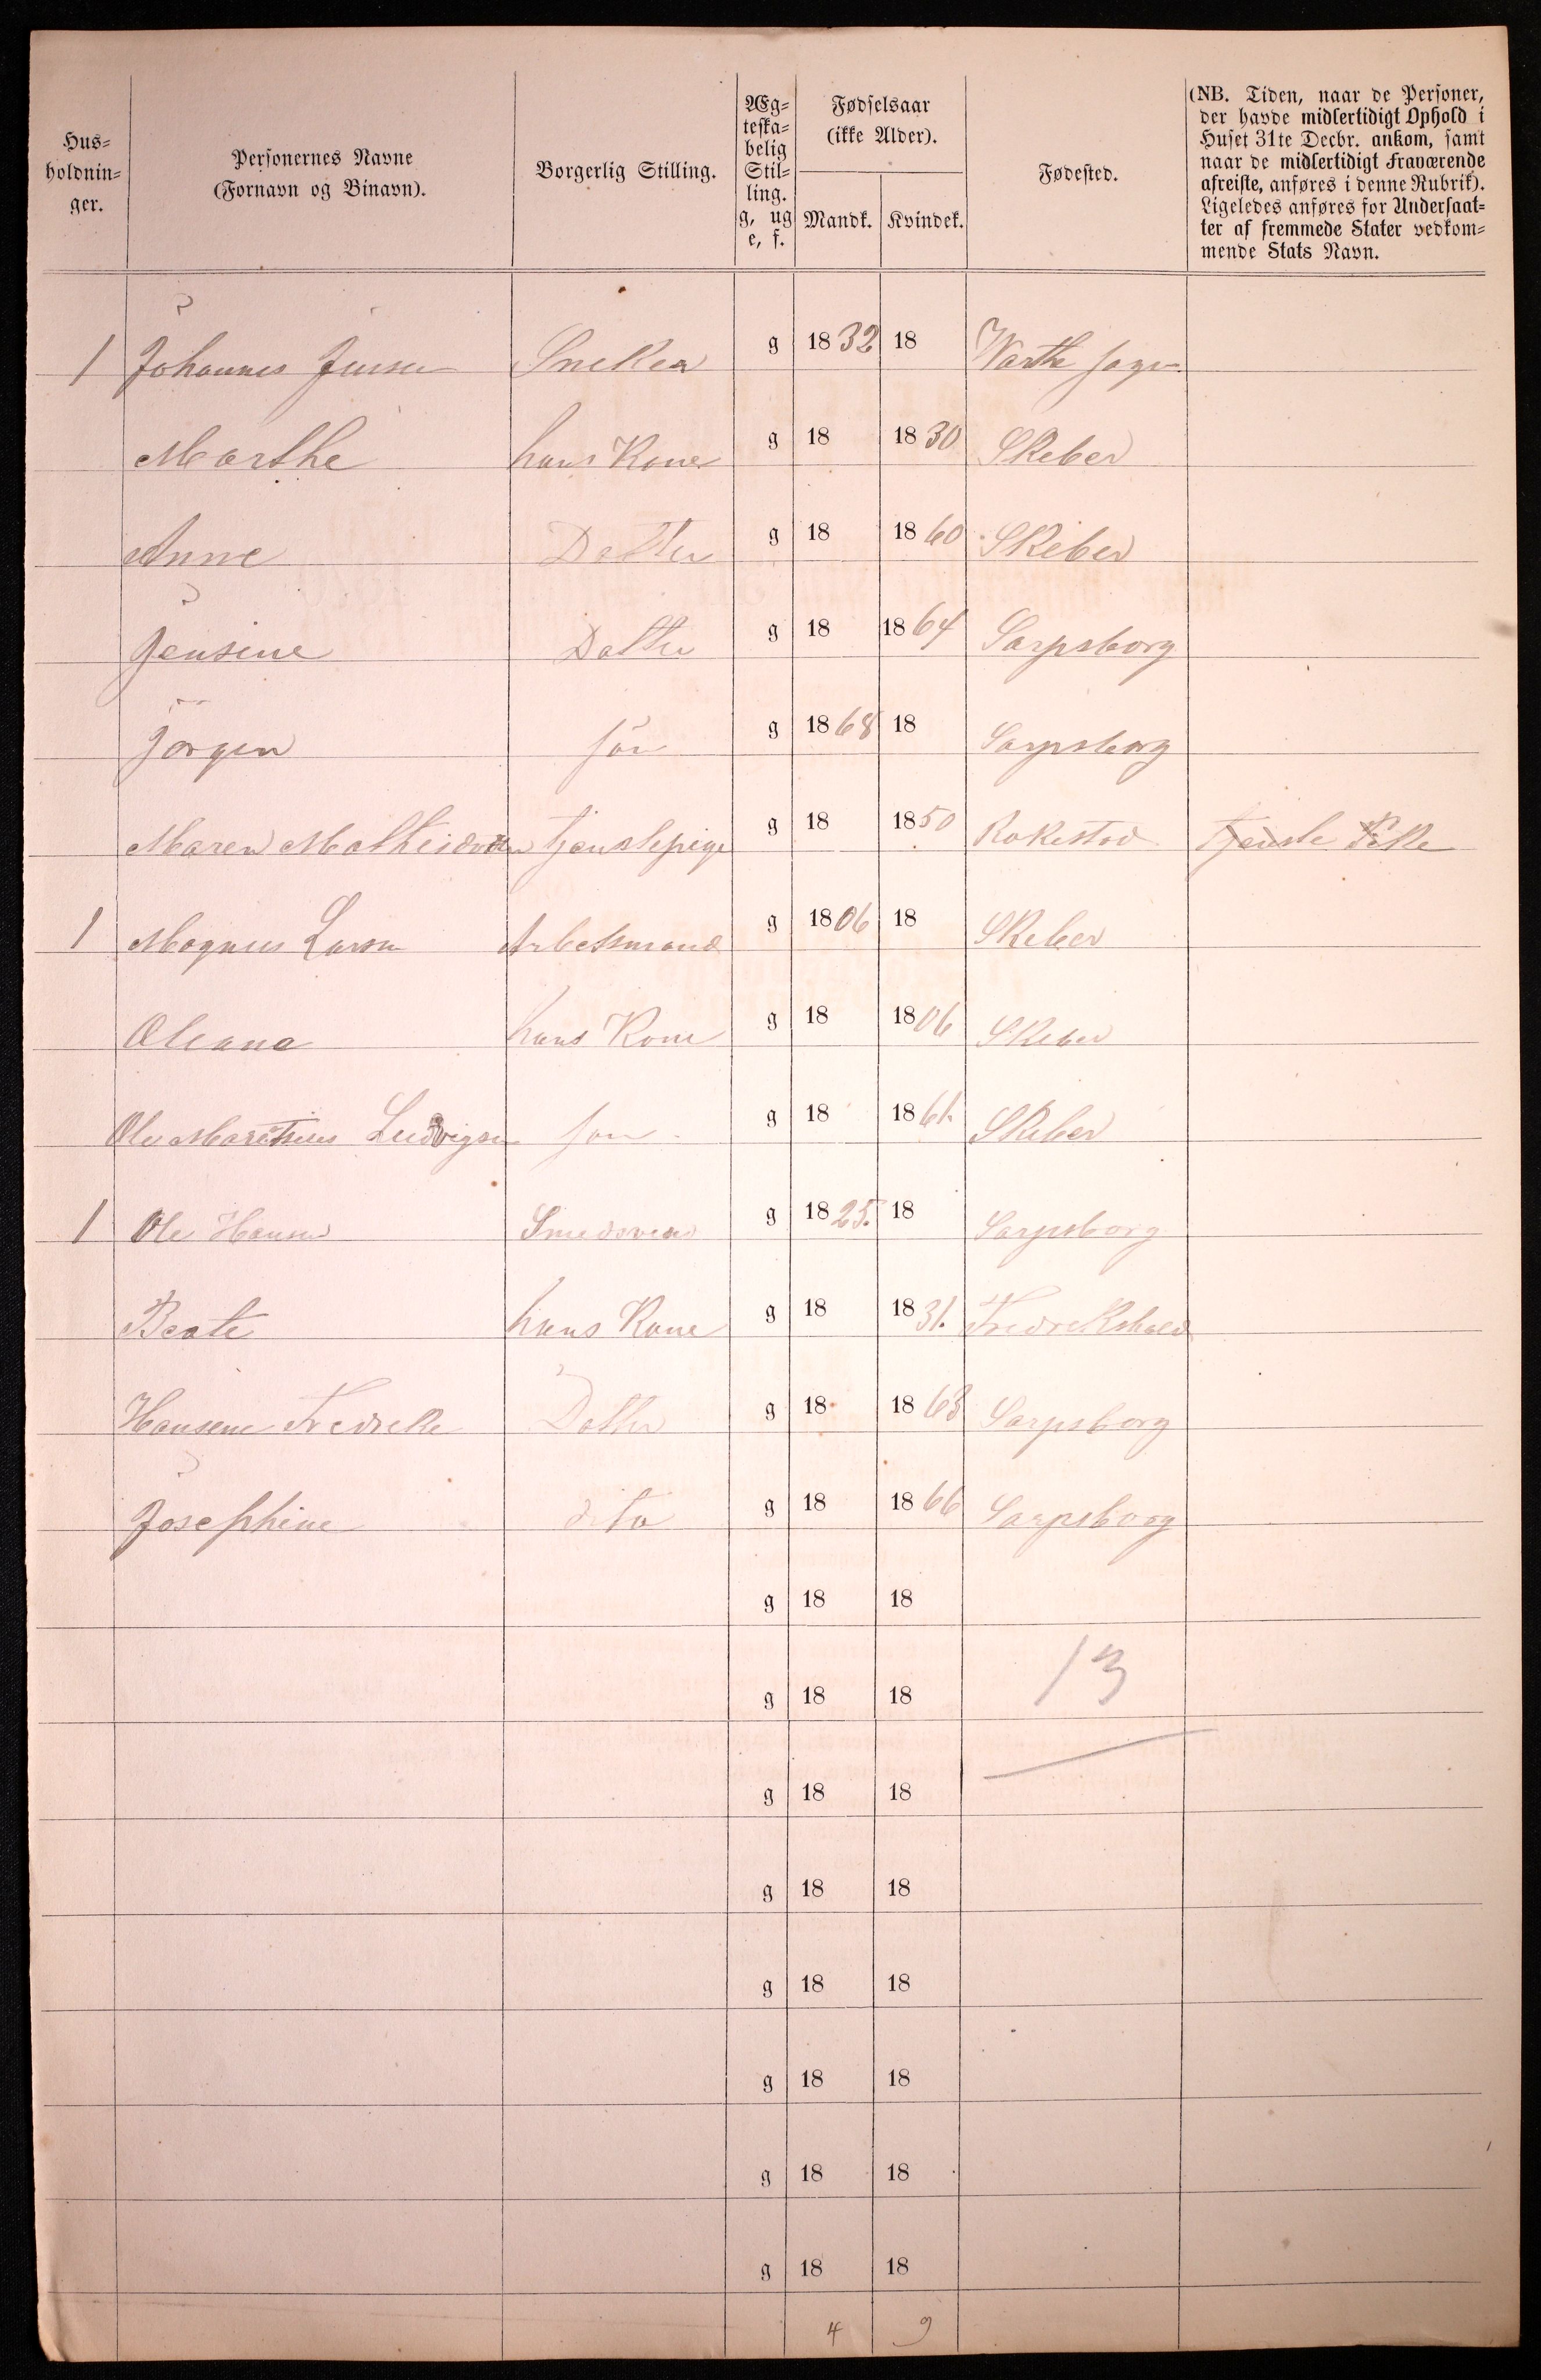 Hus=
holdnin=
ger.
Personernes Navne
(Fornavn og Binavn).
Borgerlig Stilling.
Æg=
teska=
belig
Stil=
ling.
g, ug
e, f.
Fødselsaar
(ikke Alder).
Mandk.
Kvindek.
Fødested.
(NB. Tiden, naar de Personer,
der havde midlertidigt Ophold i
Huset 31te Decbr. ankom, samt
naar de midlertidigt Fraværende
afreiste, anføres i denne Rubrik).
Ligeledes anføres for Undersaat=
ter af fremmede Stater vedkom=
mende Stats Navn.
1 Johannes Jensen Sneker g 1832 18
Marthe hans Kone g 18 1830 Skeber
Anne Datter g 18 1860 Skeber
Jensine Datter g 18 1864 Sarpsborg
Jörgen sön g 1868 18 Sarpsborg
Maren Mathisdatter tjenstepige g 18 1850 Rokestad tjenste
1 Magnus Larsen Arbetsmand g 1806 18 Skeber
Oleana hans Kone g 18 1806 Skeber
Ole Ludvigsen son g 18 1861. Skeber
1 Ole Hansen Smedsven g 1825. 18 Sarpsborg
Beate hans Kone g 18 1831. Fredrekshald
Hansene Fredreke Datter g 18 1863 Sarpsborg
Josephine dito g 18 1866 Sarpsborg
g 18 18
g 18 18 13
g 18 18
g 18 18
g 18 18
g 18 18
g 18 18
g 18 18
4 9